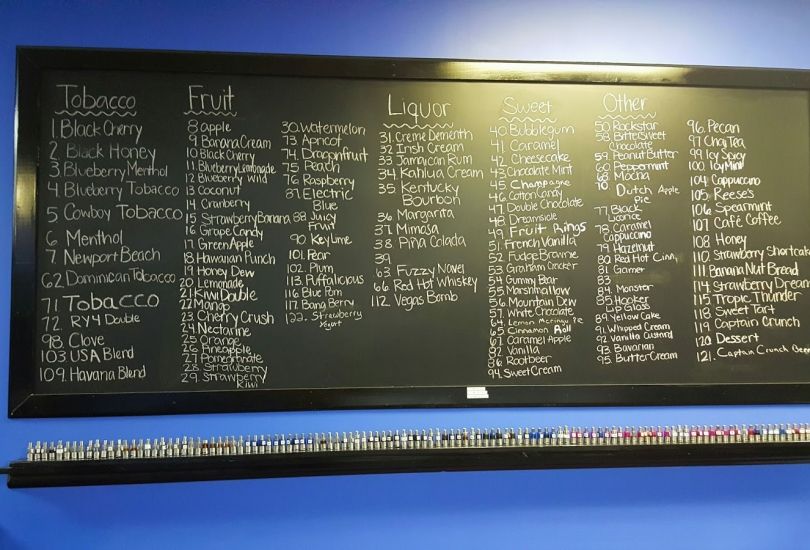 Tobacco
1. Black Cherry
2. Black Honey
3. Blueberry Menthol
4 Blueberry Tobacco
5 Cowboy Tobacco
6 Menthol
7 Newport Beach
62. Dominican Tobacco
71. Tobacco
72. RY4 Double
98. Clove
103 USA Blend
109. Havana Blend
Fruit
8 apple
9 Banana Cream
10 Black Cherry
11 Blueberry Lemonade
12 Blueberry Wild
13 Coconut
14 Cranberry
15 Strawberry Banana
16 Grape Candy
17 Green Apple
18 Hawaiian Punch
19 Honey Dew
20 Lemonade
21 Kiwi Double
22 Mango
23. Cherry Crush
24 Nectarine
25 Orange
26 Pineapple
27 Pomegranate
28. Strawberry
29. Strawberry
Kiwi
30. Watermelon
73 Apricot
74. Dragonfruit
75 Peach
76 Raspberry
87. Electric
Blue
88 Juicy
Fruit
90. Key Lime
101. Pear
102. Plum
113. Puffalicious
116 Blue Pom
117. Bang Berry
122. Strawberry
Yogurt
Liquor
31. Creme Dementh
32 Irish Cream
33 Jamaican Rum
34 Kahlua Cream
35 Kentucky
Bourbon
36 Margarita
37 Mimosa
38 Piña Colada
39
63 Fuzzy Navel
66 Red Hot Whiskey
112 Vegas Bomb
Sweet
40 Bubblegum
41 Caramel
42 Cheesecake
43 Chocolate Mint
45 Champagne
46 Cotton Candy
47 Double Chocolate
48 Dreamsicle
49 Fruit Rings
51. French Vanilla
52 Fudge Brownie
53 Graham Cracker
54 Gummy Bear
55 Marshmallow
56 Mountain Dew
57 White Chocolate
64. Lemon Meringu Pie
65 Cinnamon Roll
67. Caramel Apple
82. Vanilla
86 Rootbeer
94. Sweet Cream
Other
50. Rockstar
58. Bittersweet
Chocolate
59. Peanut Butter
60 Peppermint
68. Mocha
70. Dutch Apple
Pie
77. Black
Licorice
78. Caramel
Cappuccino
79. Hazelnut
80. Red Hot Cinn
81. Gamer
83.
84. Monster
85. Hooker
Lip Gloss
89. Yellow Cake
91. Whipped Cream
92. Vanilla Custard
93. Bavarian
95. Butter Cream
96. Pecan
97. Chai Tea
99. Icy Spicy
100. Icy Mint
104. Cappuccino
105. Reese's
106. Spearmint
107. Café Coffee
108. Honey
110. Strawberry Shortcake
111. Banana Nut Bread
114. Strawberry Dream
115 Tropic Thunder
118 Sweet Tart
119 Captain Crunch
120. Dessert
121. Captain Crunch